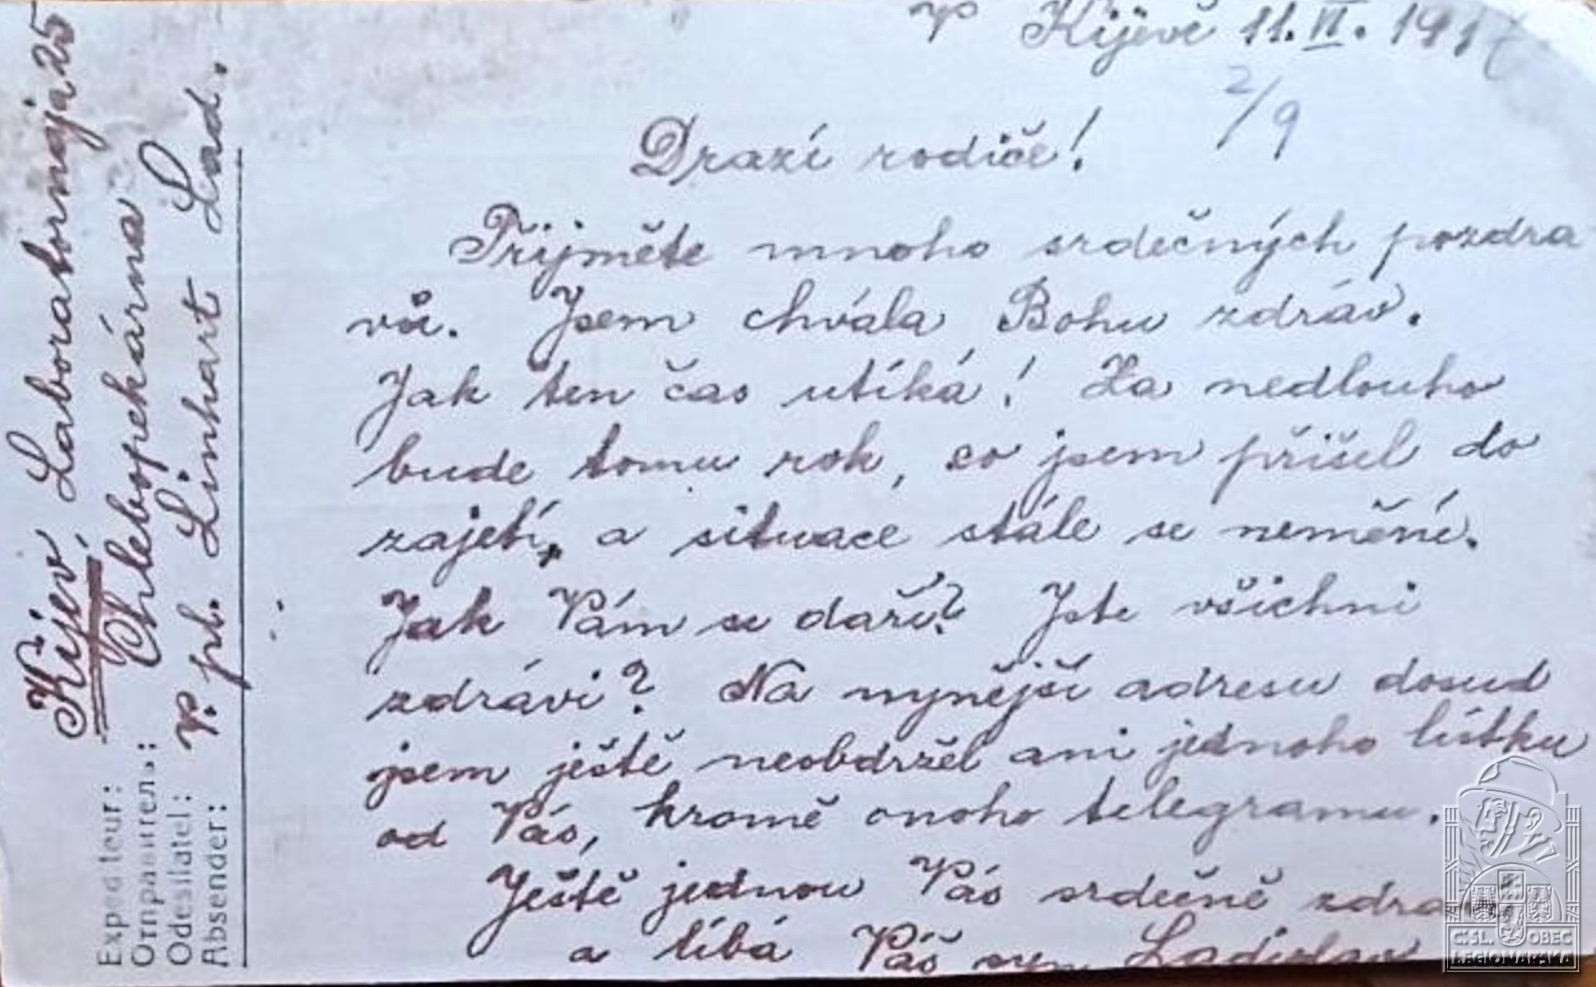 V Kijevě 11. VI. 1917
2/9
Drazí rodiče!
Přijměte mnoho srdečných pozdra
vů. Jsem chvála Bohu zdráv.
Jak ten čas utíká! Za nedlouho
bude tomu rok, co jsem přišel do
zajetí, a situace stále se nemění.
Jak Vám se daří? Jste všichni
zdrávi? Na nynější adresu dosud
jsem ještě neobdržel ani jednoho lístku
od Vás, kromě onoho telegramu.
Ještě jednou Vás srdečně zdra
a líbá Váš syn Ladislav
Expediteur:
Отправител.:
Odesílatel:
Absender:
Kijev, Laboratornaja 25
Chlebopekárna
V. pl. Linhart Lad.
ČSL. OBEC
LEGIONÁŘSKÁ